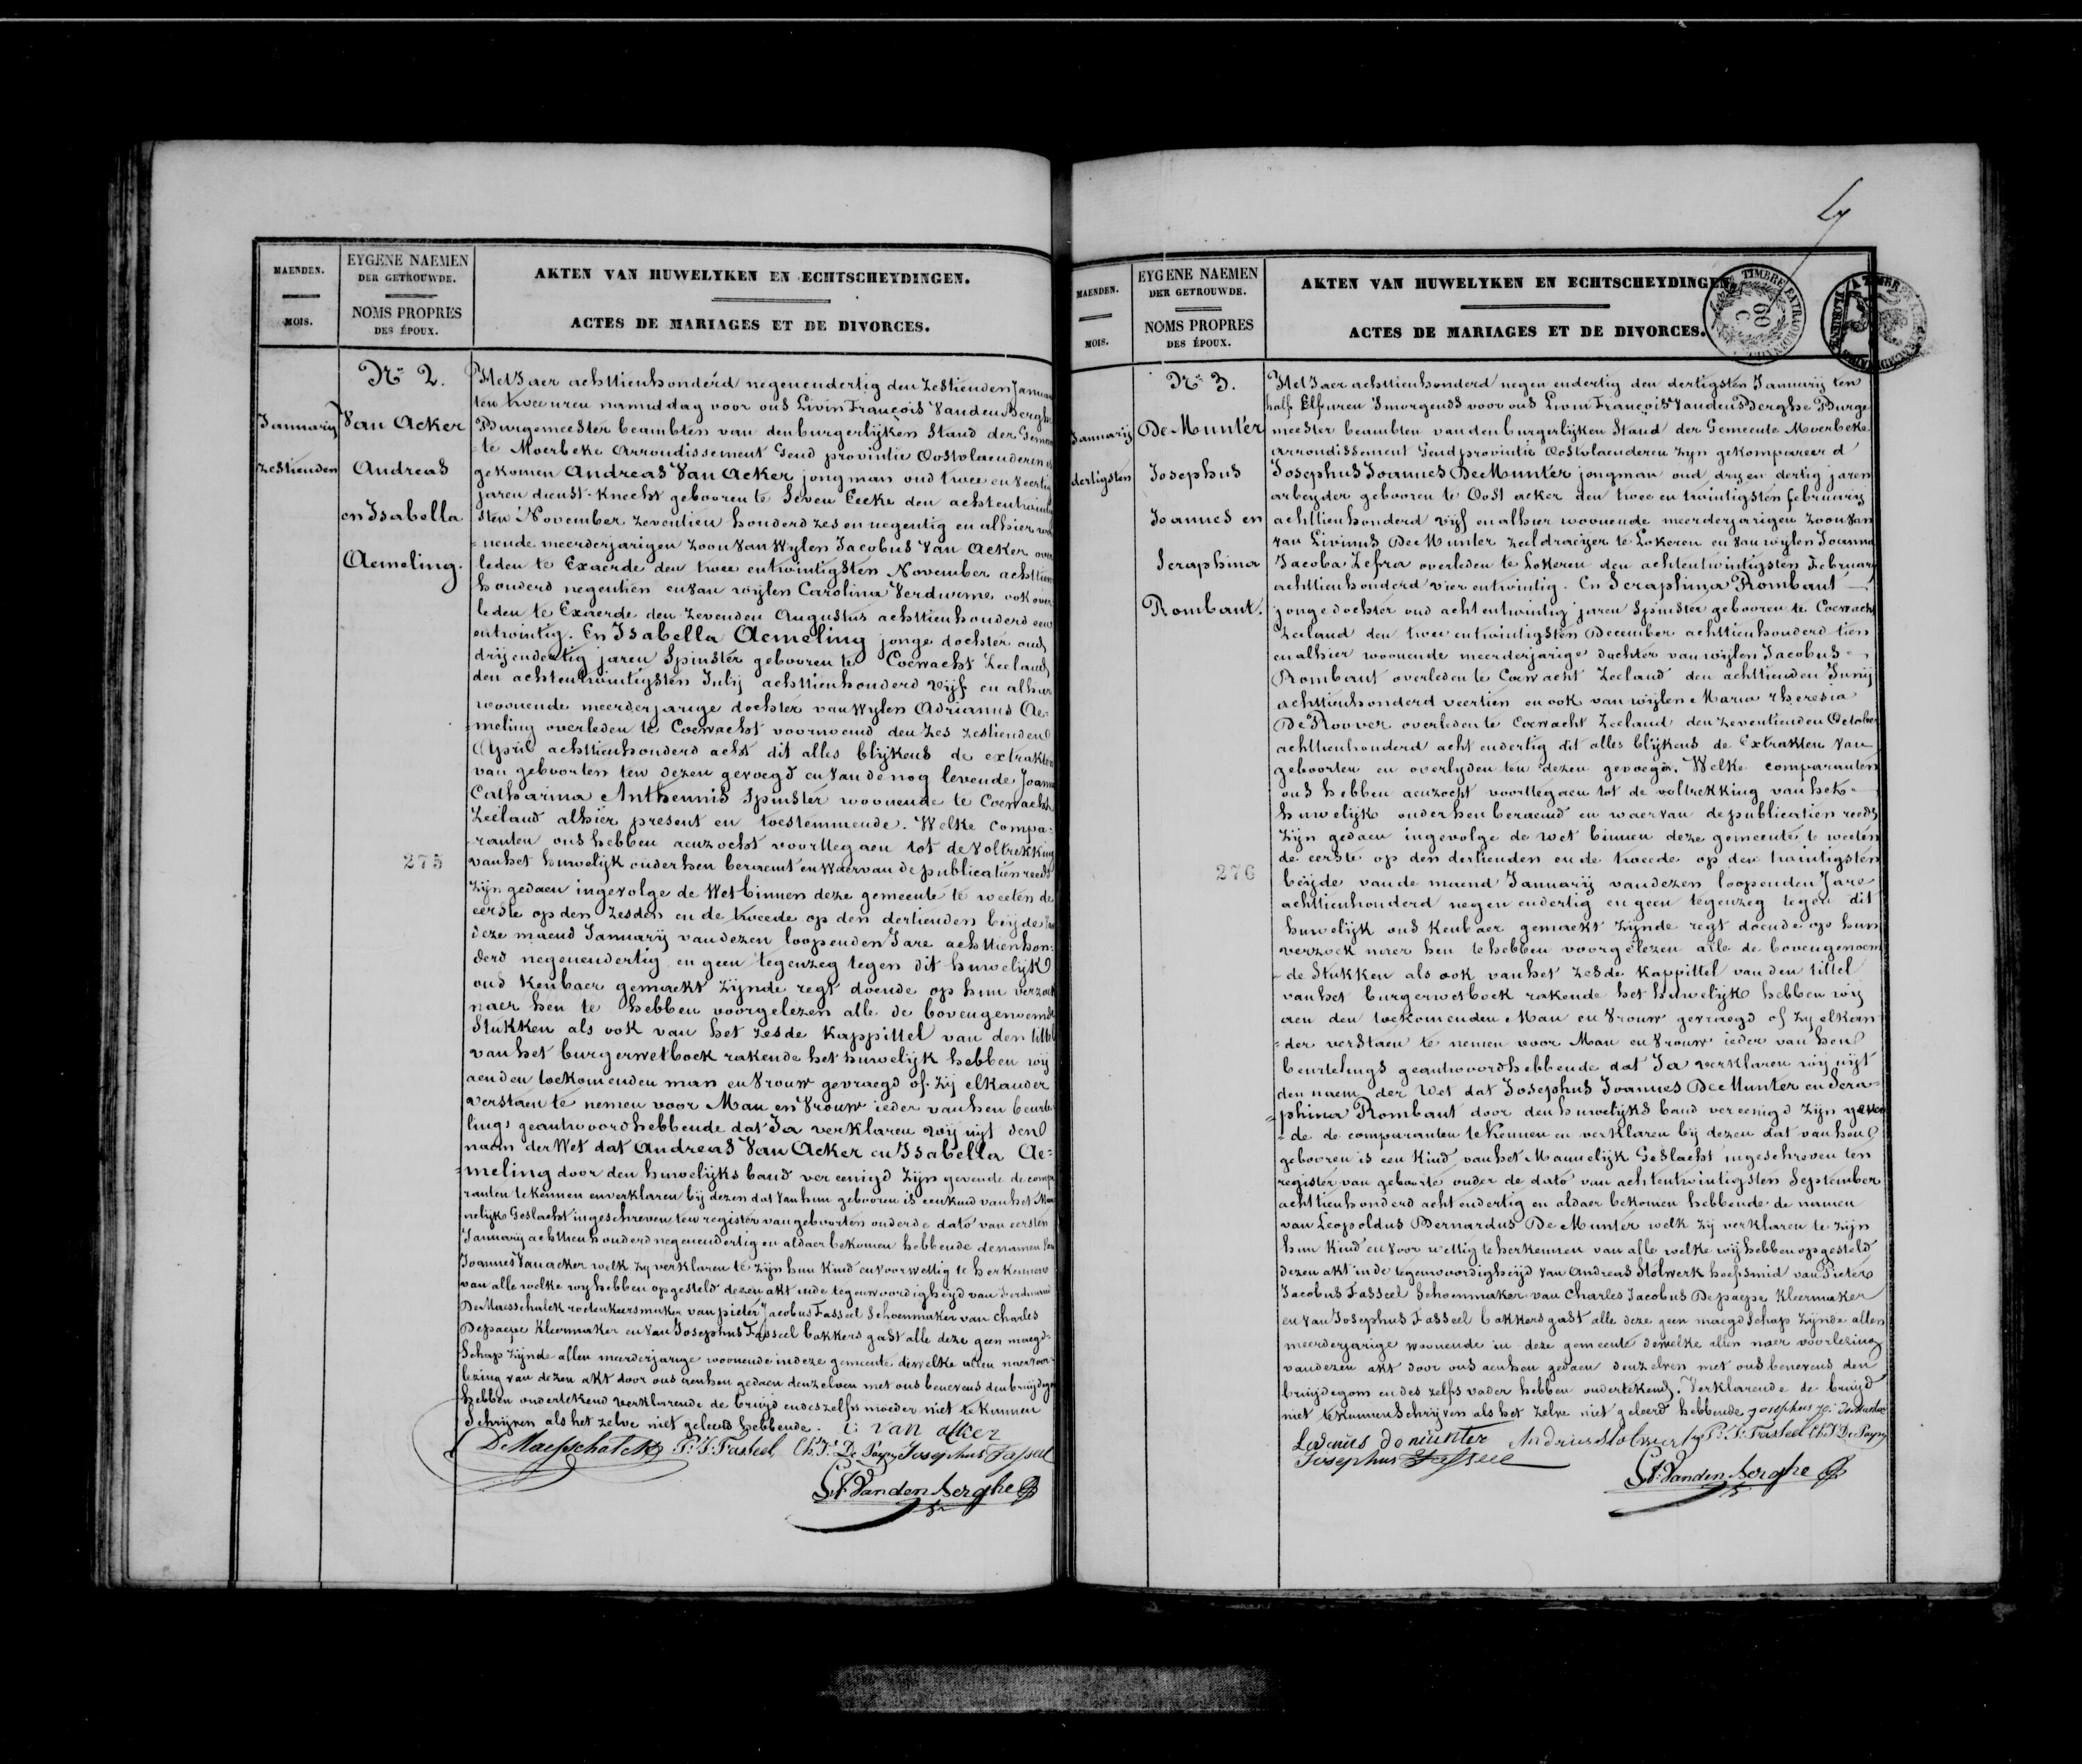 MAENDEN.
MOIS.
EYGENE NAEMEN
DER GETROUWDE.
NOMS PROPRES
DES ÉPOUX.
AKTEN VAN HUWELYKEN EN ECHTSCHEYDINGEN.
ACTES DE MARIAGES ET DE DIVORCES.
Nr 2.
January
zestienden
Van Acker
Andreas
en Isabella
Aemeling.
275
Het Jaer achttienhonderd negenendertig den zestienden Januarij
ten twee uren namiddag voor ons Livin François Vanden Berghe
Burgemeester beambten van den burgerlijken Stand der Gemeen
te Moerbeke Arrondissement Gend provintie Oostvlaenderen is
gekomen Andreas Van Acker jongman oud twee en veertig
jaren dienst-knecht gebooren te Seven Eecke den achtentwintig
sten November zeventien honderd zes en negentig en alhier woo
=nende meerderjarigen zoon van wylen Jacobus Van Acker over
leden te Exaerde den twee entwintigsten November achttien
honderd negentien en van wijlen Carolina Verdurme ook over
leden te Exaerde den zevenden Augustus achttienhonderd een
entwintig. En Isabella Aemeling jonge dochter oud
drijendertig jaren Spinster gebooren te Coewacht Zeeland
den achtentwintigsten Julij achttienhonderd vijf en alhier
woonende meerderjarige dochter van wylen Adrianus Ae=
=meling overleden te Coewacht voornoemd den zes zestienden
April achttienhonderd acht dit alles blijkens de extrakten
van geboorten ten dezen gevoegd en van de nog levende Joanna
Catharina Anthennis Spinster woonende te Coewacht
Zeeland alhier present en toestemmende. Welke compa=
ranten ons hebben aenzocht voorttegaen tot de voltrekking
van het huwelijk onder hen beraemt en waervan de publicatien reeds
zijn gedaen ingevolge de Wet binnen deze gemeente te weeten de
eerste op den zesden en de tweede op den dertienden beijde van
deze maend Januarij van dezen loopenden Jare achttienhon=
derd negenendertig en geen tegenzeg tegen dit huwelijk
ons kenbaer gemaekt zijnde regt doende op hun verzoek
naer hen te hebben voorgelezen alle de bovengenoemde
Stukken als ook van het zesde Kappittel van den tittel
van het burgerwetboek rakende het huwelijk hebben wij
aen den toekomenden man en Vrouw gevraegd of zij elkander
verstaen te nemen voor Man en Vrouw ieder van hen beurte
lings geantwoord hebbende dat Ja verklaren wij uijt den
naam der Wet dat Andreas Van Acker en Isabella Ae=
=meling door den huwelijks band vereenigd zijn gevende de compa
ranten te kennen en verklaren bij dezen dat van hun gebooren is een kind van het Man
nelijk Geslacht ingeschreven ten register van geboorten onder de dato van eersten
Januarij achttienhonderd negenendertig en aldaer bekomen hebbende de namen van
Joannes Van acker welk zij verklaren te zijn hun Kind en voor wettig te herkennen
van alle welke wij hebben opgesteld dezen akt in de tegenwoordigheijd van Ferdinand
De Maesschalck roedenkeersmaker van pieter Jacobus Fasseel Schoenmaker van Charles
Depaepe Kleermaker en van Josephus Fasseel bakkers gast alle deze geen maegd=
Schap zijnde allen meerderjarige woonende in deze gemeente dewelke allen naer voor=
lezing van dezen akt door ons aen hen gedaen denzelven met ons benevens den bruijdegom
hebben ondertekend verklarende de bruijd en des zelfs moeder niet te kunnen
Schrijven als het zelve niet geleerd hebbende.
van acker
De Maesschalck P: J: Fasseel Ch: J: De Paepe Josephus Fasseel
L: f: Vanden Berghe
MAENDEN.
MOIS.
EYGENE NAEMEN
DER GETROUWDE.
NOMS PROPRES
DES ÉPOUX.
AKTEN VAN HUWELYKEN EN ECHTSCHEYDINGEN.
ACTES DE MARIAGES ET DE DIVORCES.
TIMBRE EXTRAORDINAIRE
Nr 3.
Januarij
dertigsten
De Munter
Josephus
Joannes en
Seraphina
Rombaut.
276
Het Jaer achttienhonderd negen endertig den dertigsten Januarij ten
half Elf uren Smorgends voor ons Livin François Vanden Berghe Burge
meester beambten van den burgerlijken Stand der Gemeente Moerbeke
arrondissement Gend provintie Oostvlaenderen zyn gekompareerd
Josephus Joannes De Munter jongman oud dry en dertig jaren
arbeyder gebooren te Oost acker den twee en twintigsten februarij
achttienhonderd vijf en alhier woonende meerderjarigen zoon van
van Livinus De Munter zeeldraeijer te Lokeren en van wijlen Joanna
Jacoba Zefra overleden te Lokeren den achtentwintigsten Februarij
achttienhonderd vier entwintig. En Seraphina Rombaut
jonge dochter oud acht entwintig jaren Spinster gebooren te Coewacht
Zeeland den twee entwintigsten December achttienhonderd tien
en alhier woonende meerderjarige dochter van wijlen Jacobus
Rombaut overleden te Coewacht Zeeland den achttienden Junij
achttienhonderd veertien en ook van wijlen Maria theresia
De Roover overleden te Coewacht Zeeland den zeventienden October
achttienhonderd acht endertig dit alles blijkens de Extrakten van
geboorten en overlyden ten dezen gevoegd. Welke comparanten
ons hebben aenzocht voorttegaen tot de voltrekking van het
huwelijk onder hen beraemd en waervan de publicatien reeds
zijn gedaen ingevolge de wet binnen deze gemeente te weeten
de eerste op den dertienden en de tweede op den twintigsten
beijde van de maend Januarij van dezen loopenden Jare
achttienhonderd negen endertig en geen tegenzeg tegen dit
huwelijk ons kenbaer gemaekt zijnde regt doende op hun
verzoek naer hen te hebben voorgelezen alle de bovengenoem
=de Stukken als ook van het zesde Kappittel van den tittel
van het burgerwetboek rakende het huwelijk hebben wij
aen den toekomenden Man en Vrouw gevraegd of zy elkan
=der verstaen te nemen voor Man en Vrouw ieder van hen
beurtelings geantwoord hebbende dat Ja verklaren wij uijt
den naem der Wet dat Josephus Joannes De Munter en Sera=
=phina Rombaut door den huwelijks band vereenigd zijn geven
=de de comparanten te kennen en verklaren bij dezen dat van hen
gebooren is een kind van het Mannelijk Geslacht ingeschreven ten
register van geboorte onder de dato van achtentwintigsten September
achttienhonderd acht endertig en aldaer bekomen hebbende de namen
van Leopoldus Bernardus De Munter welk zij verklaren te zijn
hun Kind en voor wettig te herkennen van alle welke wij hebben opgesteld
dezen akt in de tegenwoordigheijd van Andreas Stolwerk hoefsmid van Pieter
Jacobus Fasseel Schoenmaker van Charles Jacobus Depaepe Kleermaker
en van Josephus Fasseel bakkers gast alle deze geen maegdschap zijnde allen
meerderjarige woonende in deze gemeente dewelke allen naer voorlezing
van dezen akt door ons aen hen gedaen denzelven met ons benevens den
bruijdegom en des zelfs vader hebben ondertekend. Verklarende de bruijd
niet te kunnen Schrijven als het zelve niet geleerd hebbende
Josephus Jo: De Munter
de munter P: J: Fasseel Ch: J: De Paepe
Josephus Fasseel
L: f: Vanden Berghe